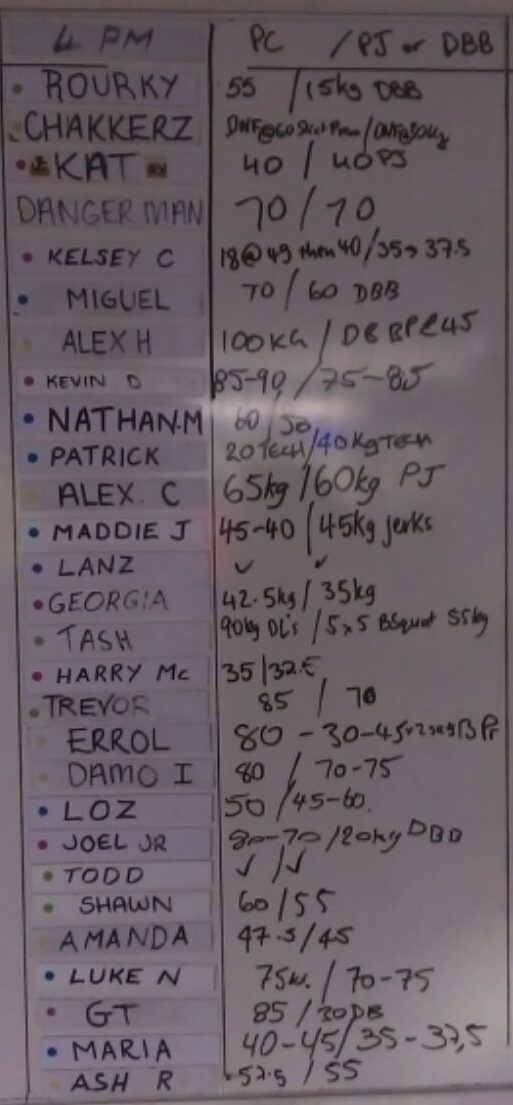 4 PM PC / PJ or DBB
ROURKY 55 / 15kg DBB
CHAKKERZ DNF@60 / DNF@50kg
KAT 40 / 40PJ
DANGER MAN 70 / 70
KELSEY C 18@45 then 40 / 35→37.5
MIGUEL 70 / 60 DBB
ALEX H 100KG / DBBP 45
KEVIN D 85-90 / 75-85
NATHAN.M 60 / 50
PATRICK 20TECH / 40KgTECH
ALEX. C 65kg / 60kg PJ
MADDIE J 45-40 / 45kg jerks
LANZ ✓ ✓
GEORGIA 42.5kg / 35kg
TASH 90kg DL's / 5x5 BSquat 55kg
HARRY Mc 35 / 32.5
TREVOR 85 / 70
ERROL 80 - 30-45
DAMO I 80 / 70-75
LOZ 50 / 45-60.
JOEL JR 80-70 / 20kg DBB
TODD ✓ / ✓
SHAWN 60 / 55
AMANDA 47.5 / 45
LUKE N 75 / 70-75
GT 85 / 30DB
MARIA 40-45 / 35-37,5
ASH R 57.5 / 55